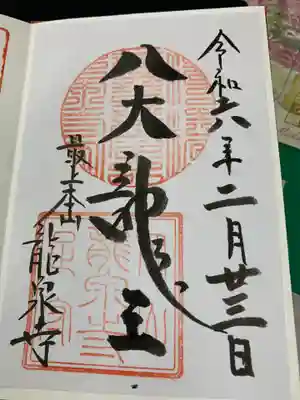 令和六年二月廿三日
八大龍王
最上本山
龍泉寺